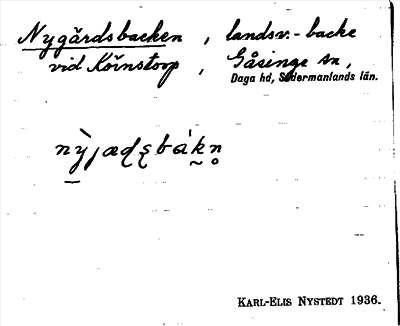 Nygärdsbacken , landsv.-backe
vid Körnstorp , Gåsinge sn,
Daga hd, Södermanlands län.
KARL-ELIS NYSTEDT 1936.